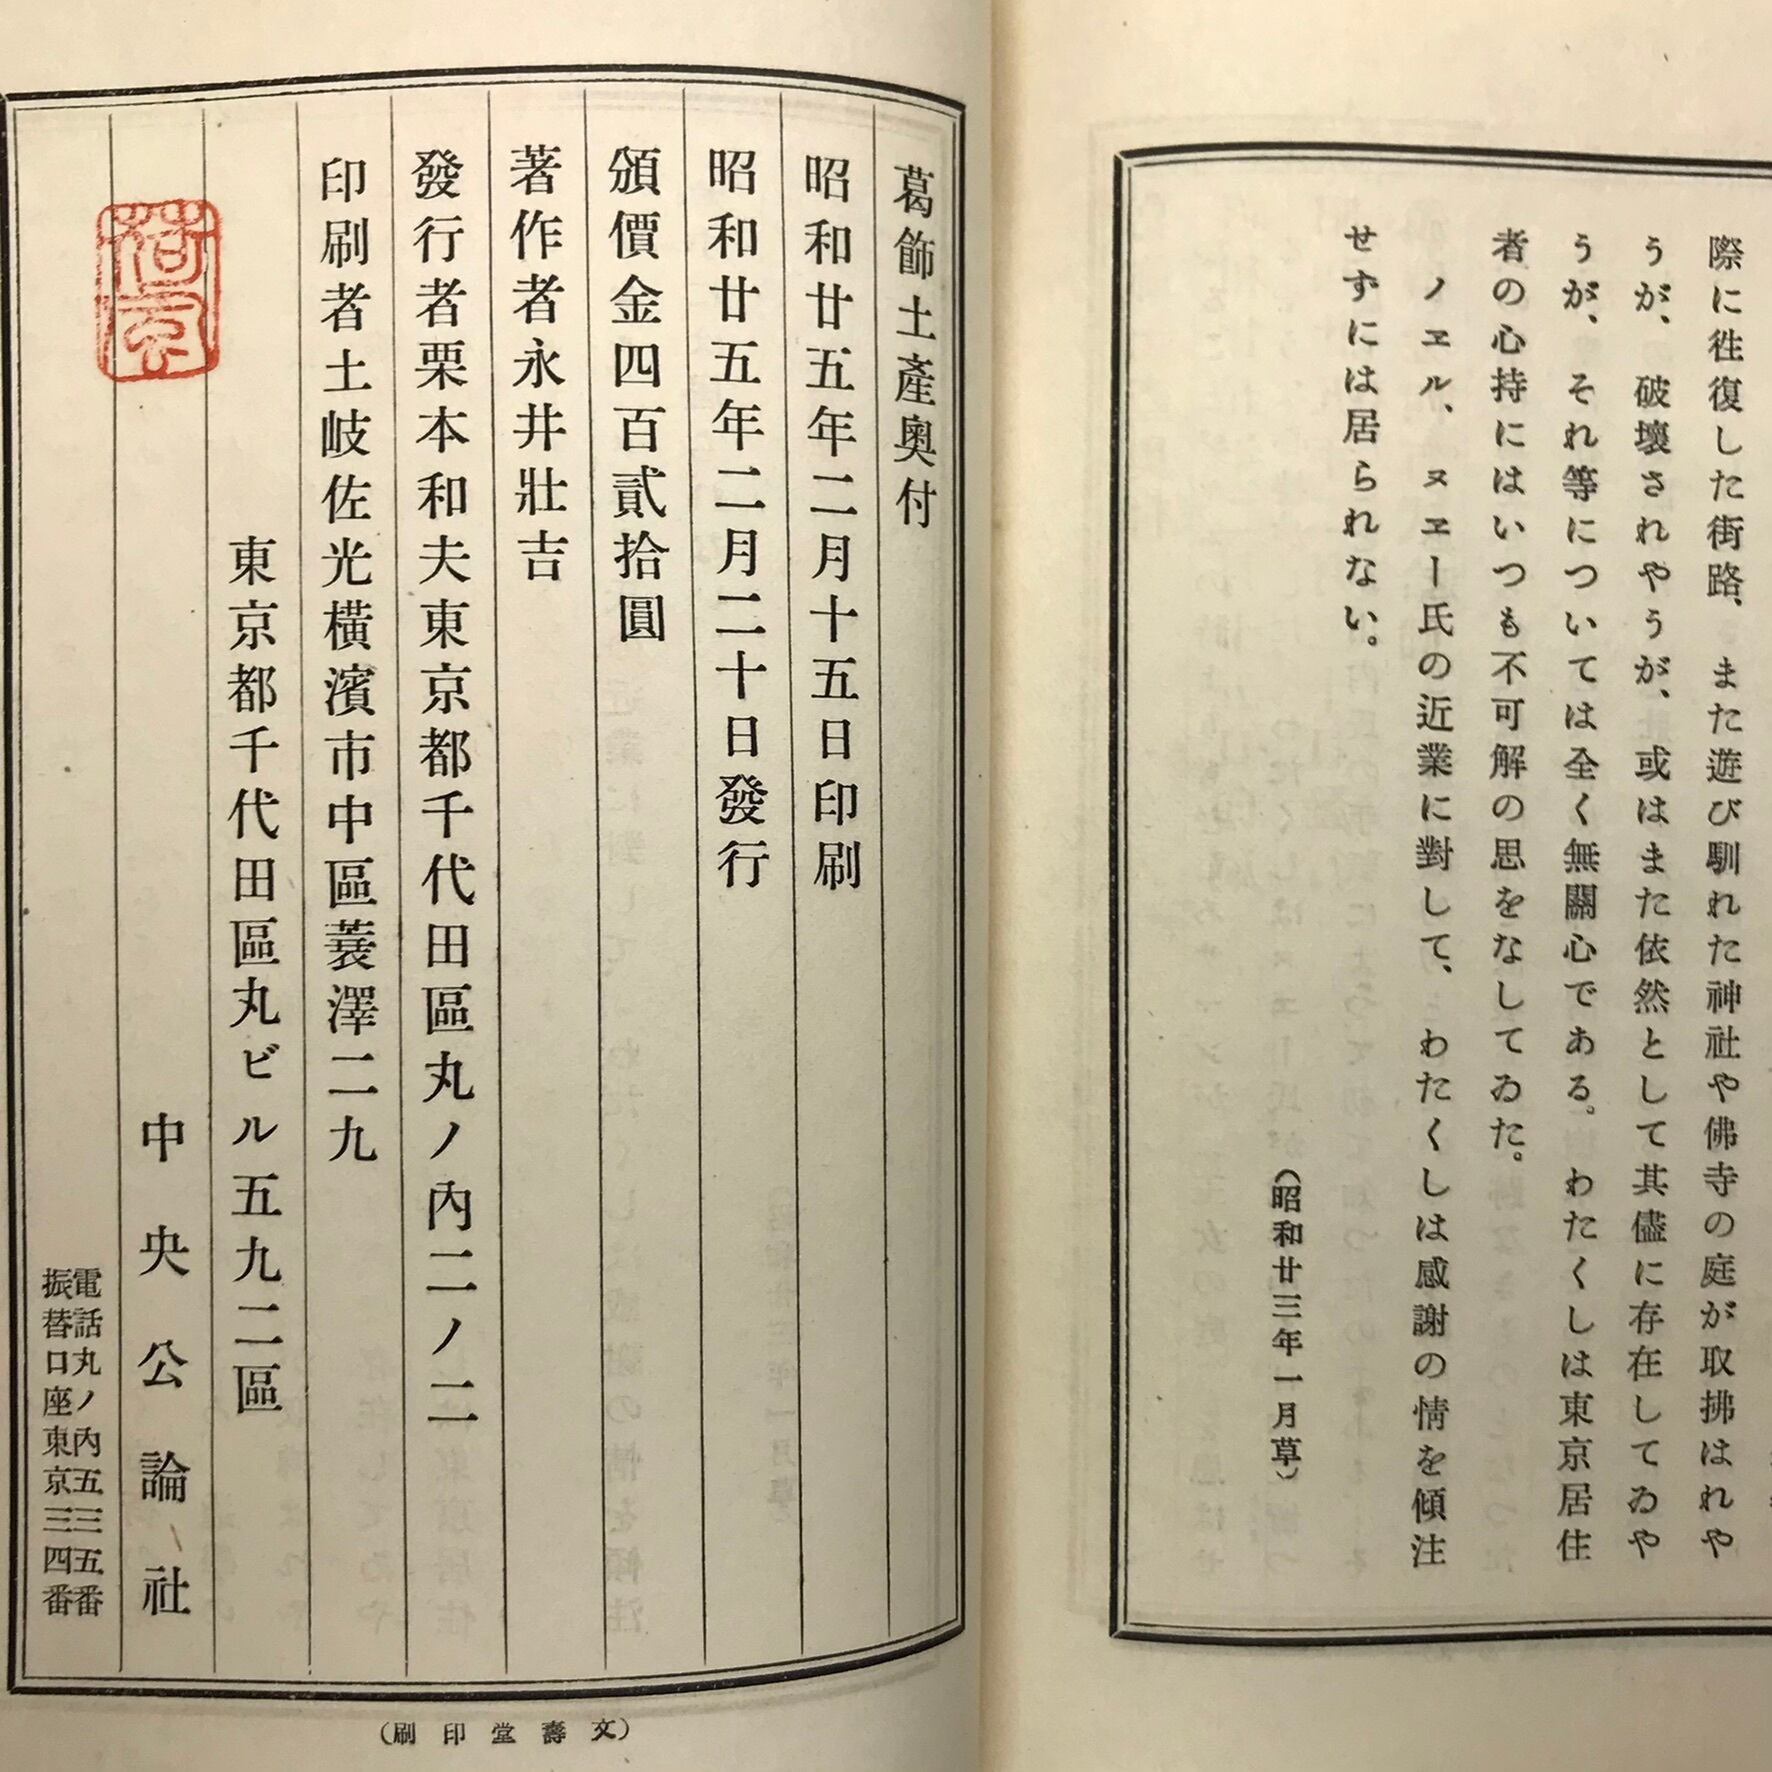 際に徃復した街路、また遊び馴れた神社や佛寺の庭が取拂はれや
うが、破壞されやうが、或はまた依然として其儘に存在してゐや
うが、それ等については全く無關心である。わたくしは東京居住
者の心持にはいつも不可解の思をなしてゐた。
ノエル、ヌエー氏の近業に對して、わたくしは感謝の情を傾注
せずには居られない。
（昭和廿三年一月草）
葛飾土產奧付
昭和廿五年二月十五日印刷
昭和廿五年二月二十日發行
頒價金四百貳拾圓
著作者永井壯吉
發行者栗本和夫東京都千代田區丸ノ內二ノ二
印刷者土岐佐光橫濱市中區蓑澤二九
東京都千代田區丸ビル五九二區
中央公論社
電話丸ノ內五三五番
振替口座東京三四番
荷風
（文壽堂印刷）